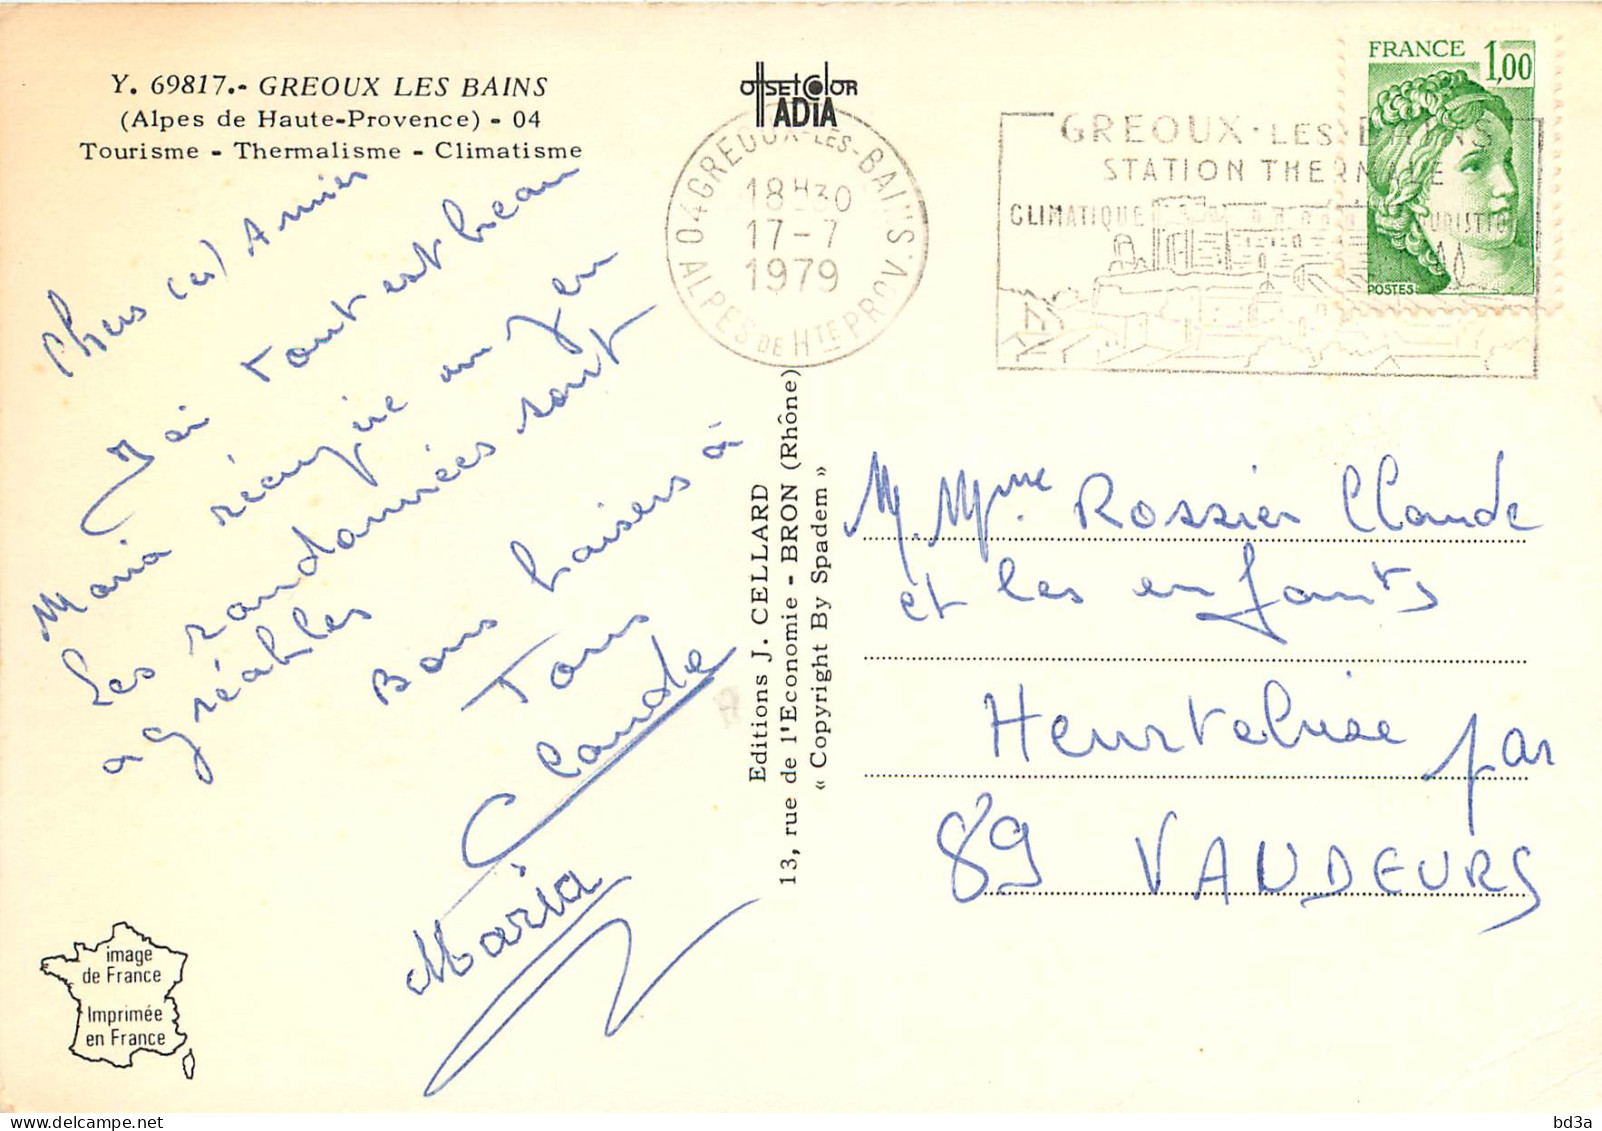 Y. 69817.- GREOUX LES BAINS
(Alpes de Haute-Provence) - 04
Tourisme - Thermalisme - Climatisme
Chers (es) Amies
Ici tout est beau
Maria réargire un peu
Les randonnées sont
agréables
Bons baisers à
Tous
Claude
Maria
image
de France
Imprimée
en France
OffsetColor
ADIA
Editions J. CELLARD
13, rue de l'Economie - BRON (Rhône)
« Copyright By Spadem »
04 GREOUX-LES-BAINS
18H30
17-7
1979
ALPES DE HTE PROV.
GREOUX·LES·BAINS
STATION THERMALE
CLIMATIQUE TOURISTIQUE
FRANCE 1,00
POSTES
M. Mme. Rossier Claude
et les enfants
Heurtebise par
89 VAUDEURS
bd3a